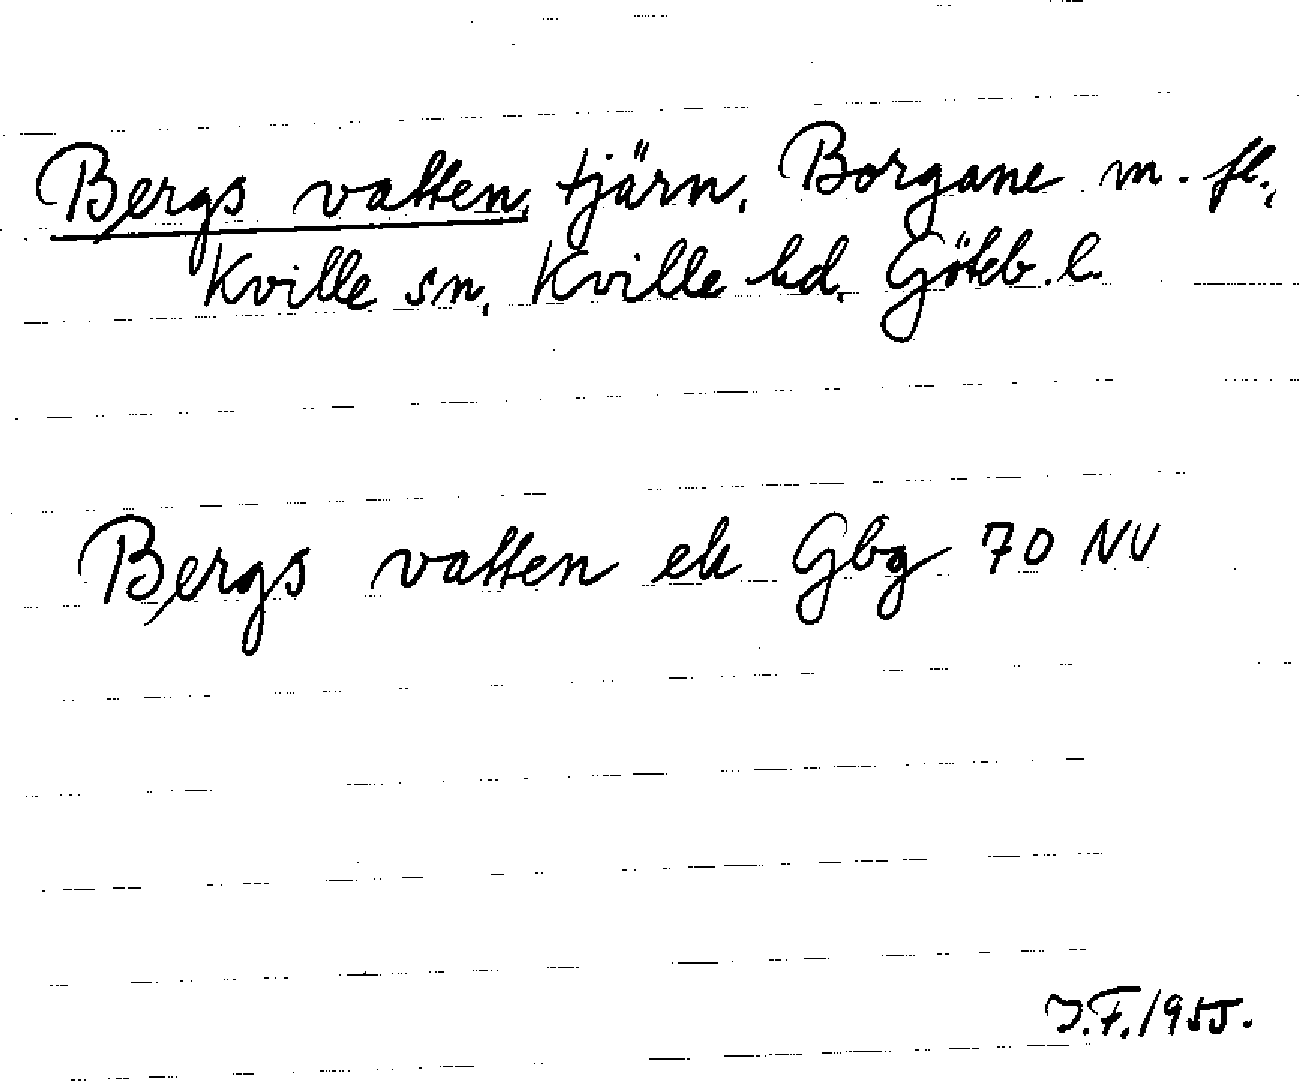 Bergs vatten, tjärn, Borgane m. fl.,
Kville sn, Kville hd, Göteb. l.
Bergs vatten ek Gbg 70 NV
J.F. 1955.